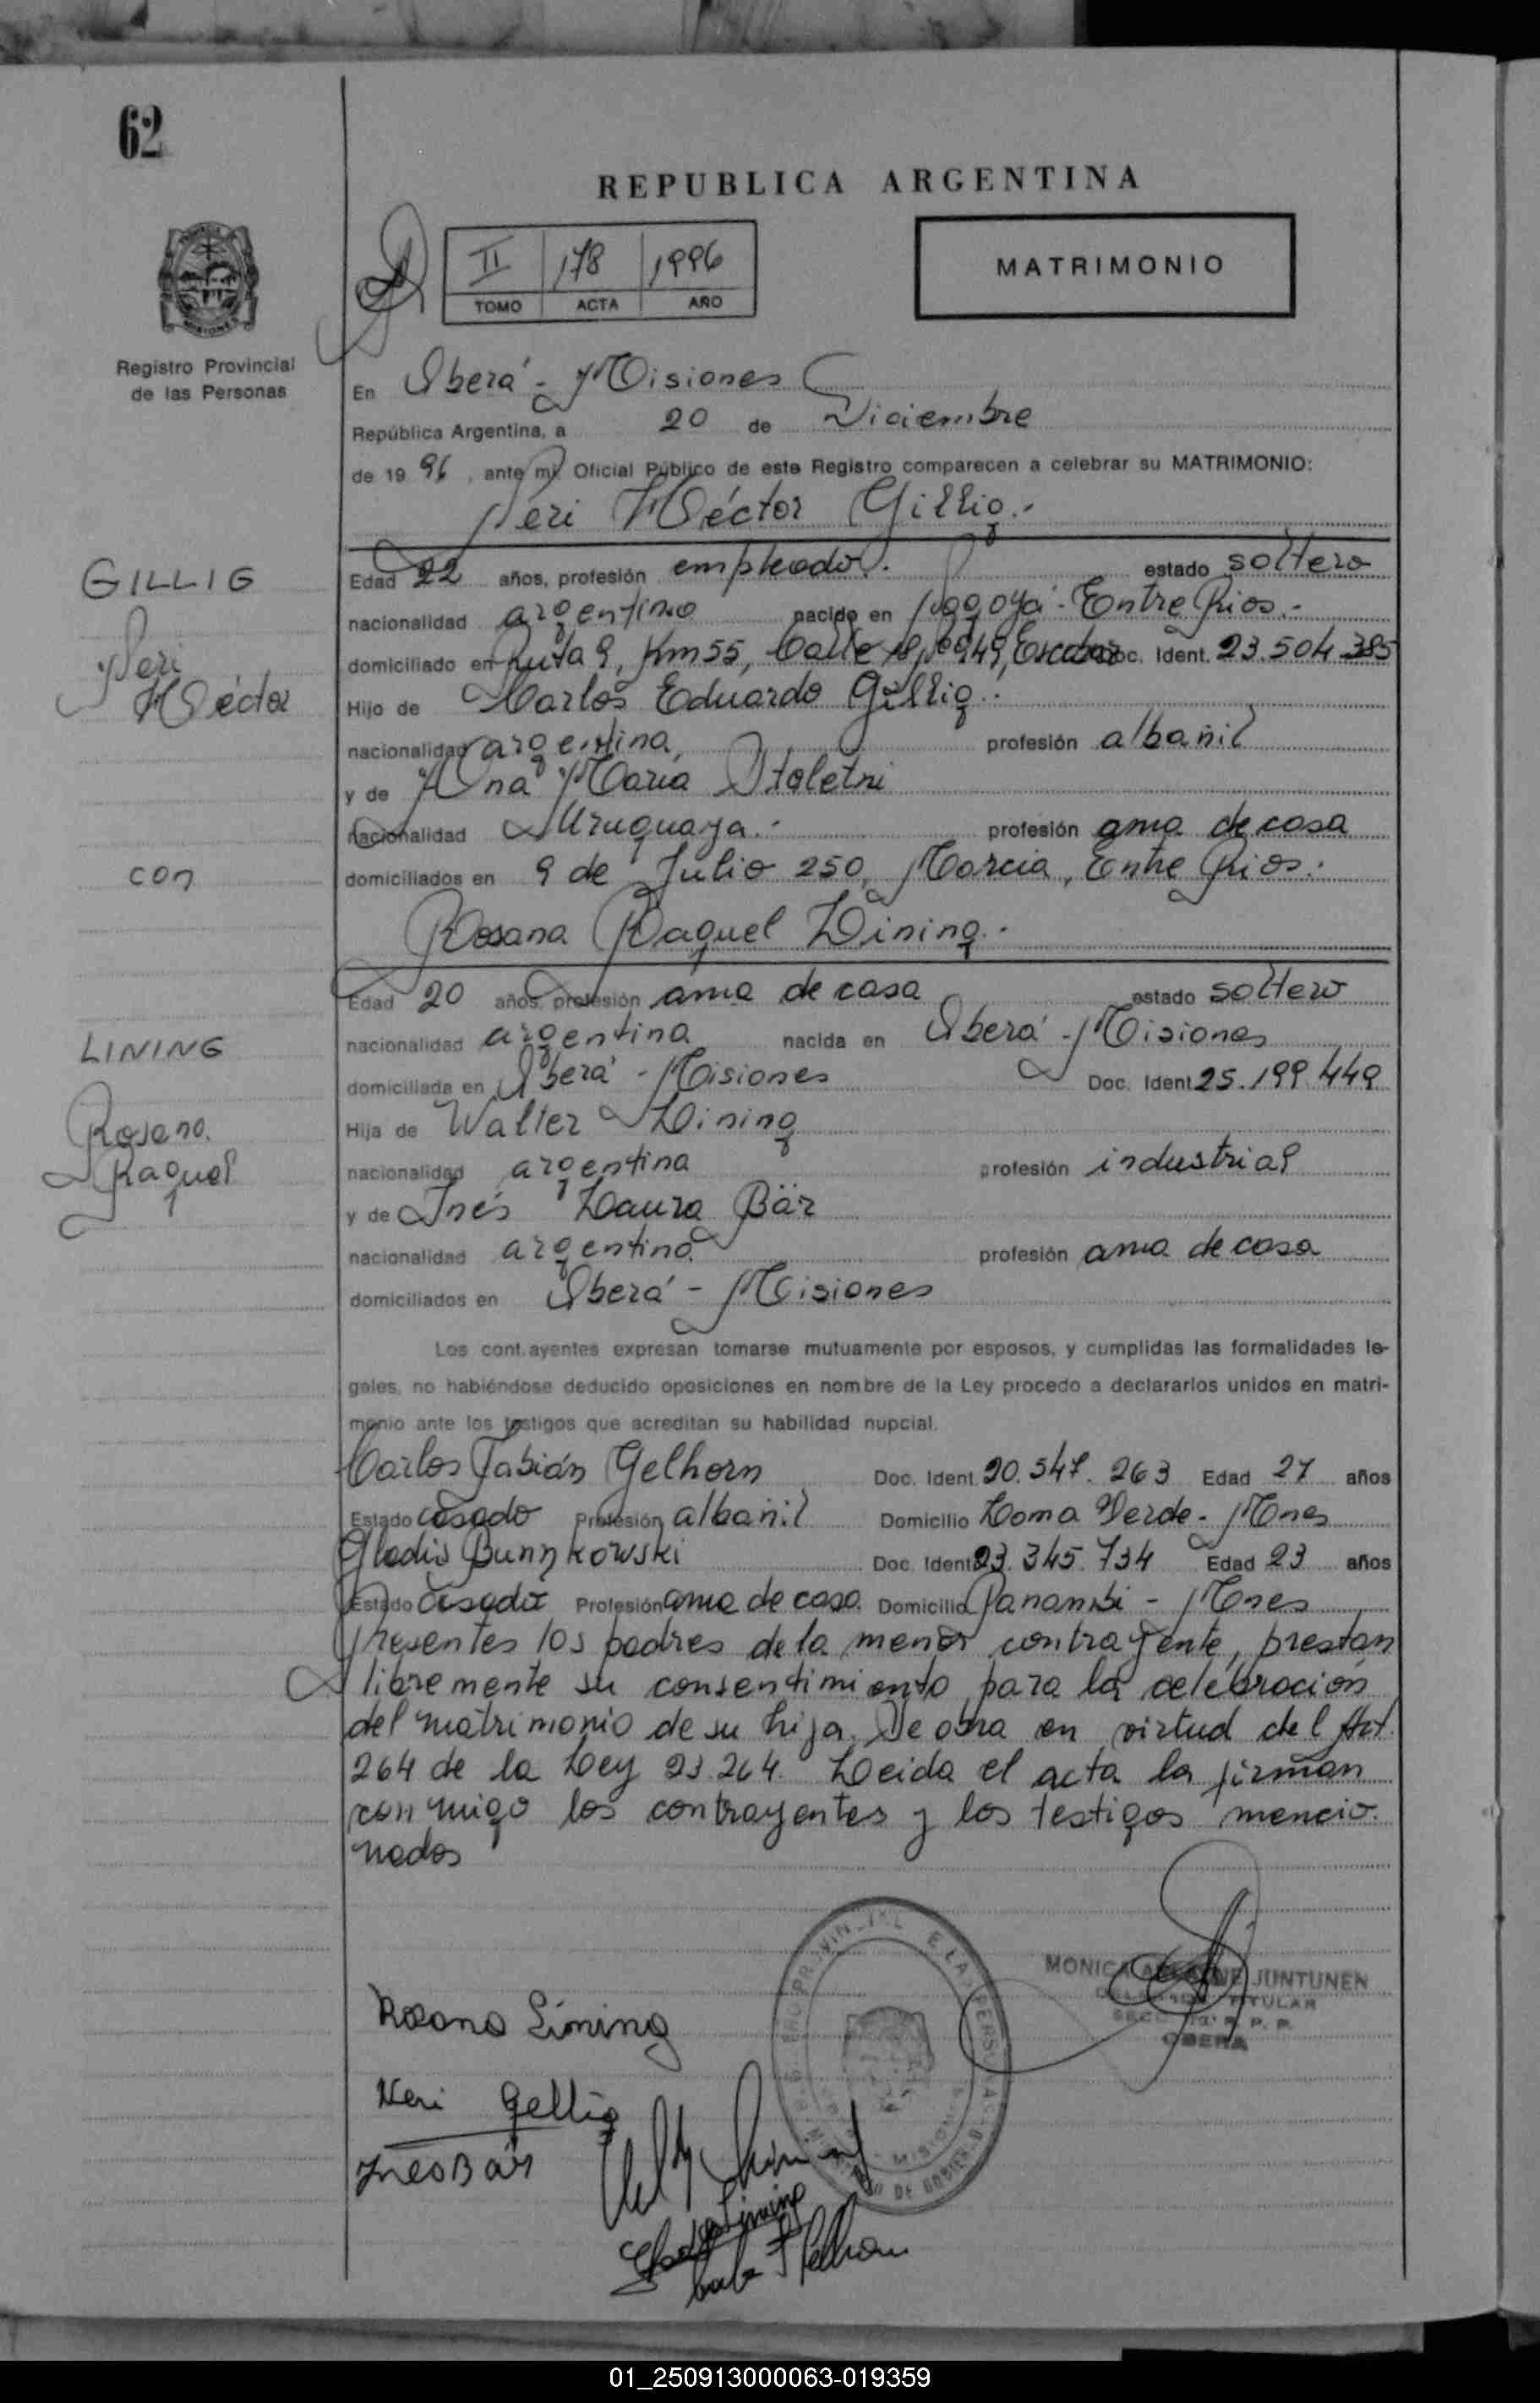 62
REPUBLICA ARGENTINA
II 178 1996
TOMO ACTA AÑO
MATRIMONIO
Registro Provincial
de las Personas
En Oberá - Misiones
República Argentina, a 20 de Diciembre
de 1996, ante mí Oficial Público de este Registro comparecen a celebrar su MATRIMONIO:
Neri Héctor Gillig.-
GILLIG
Neri
Héctor
con
LINING
Rosana
Raquel
Edad 22 años, profesión empleado. estado soltero
nacionalidad argentino nacido en Nogoyá - Entre Rios.-
domiciliado en Ruta 9, Km 55, Calle Escobar Doc. Ident. 23.504.385
Hijo de Carlos Eduardo Gillig.-
nacionalidad argentina profesión albañil
y de Ana María
nacionalidad Uruguaya.- profesión ama de casa
domiciliados en 9 de Julio 250, Entre Rios.
Rosana Raquel Lining.-
Edad 20 años, profesión ama de casa estado soltera
nacionalidad argentina nacida en Oberá - Misiones
domiciliada en Oberá - Misiones Doc. Ident. 25.199.449
Hija de Walter Lining
nacionalidad argentina profesión industrial
y de Inés Laura Bär
nacionalidad argentina profesión ama de casa
domiciliados en Oberá - Misiones
Los cont.ayentes expresan tomarse mutuamente por esposos, y cumplidas las formalidades le-
gales, no habiéndose deducido oposiciones en nombre de la Ley procedo a declararlos unidos en matri-
monio ante los testigos que acreditan su habilidad nupcial.
Carlos Fabián Gelhorn Doc. Ident. 20.547.263 Edad 27 años
Estado casado Profesión albañil Domicilio Loma Verde - Mnes
Gladis Doc. Ident. 23.345.734 Edad 23 años
Estado casada Profesión ama de casa Domicilio Panambi - Mnes
Presentes los padres de la menor contrayente, prestan
libremente su consentimiento para la celebración
del matrimonio de su hija. Se obra en virtud del Art.
264 de la Ley 23.264. Leida el acta la firman
conmigo los contrayentes y los testigos mencio-
nados
MONICA JUNTUNEN
TITULAR
OBERA
Rosana Lining
Neri Gillig
Ines Bär
01_250913000063-019359